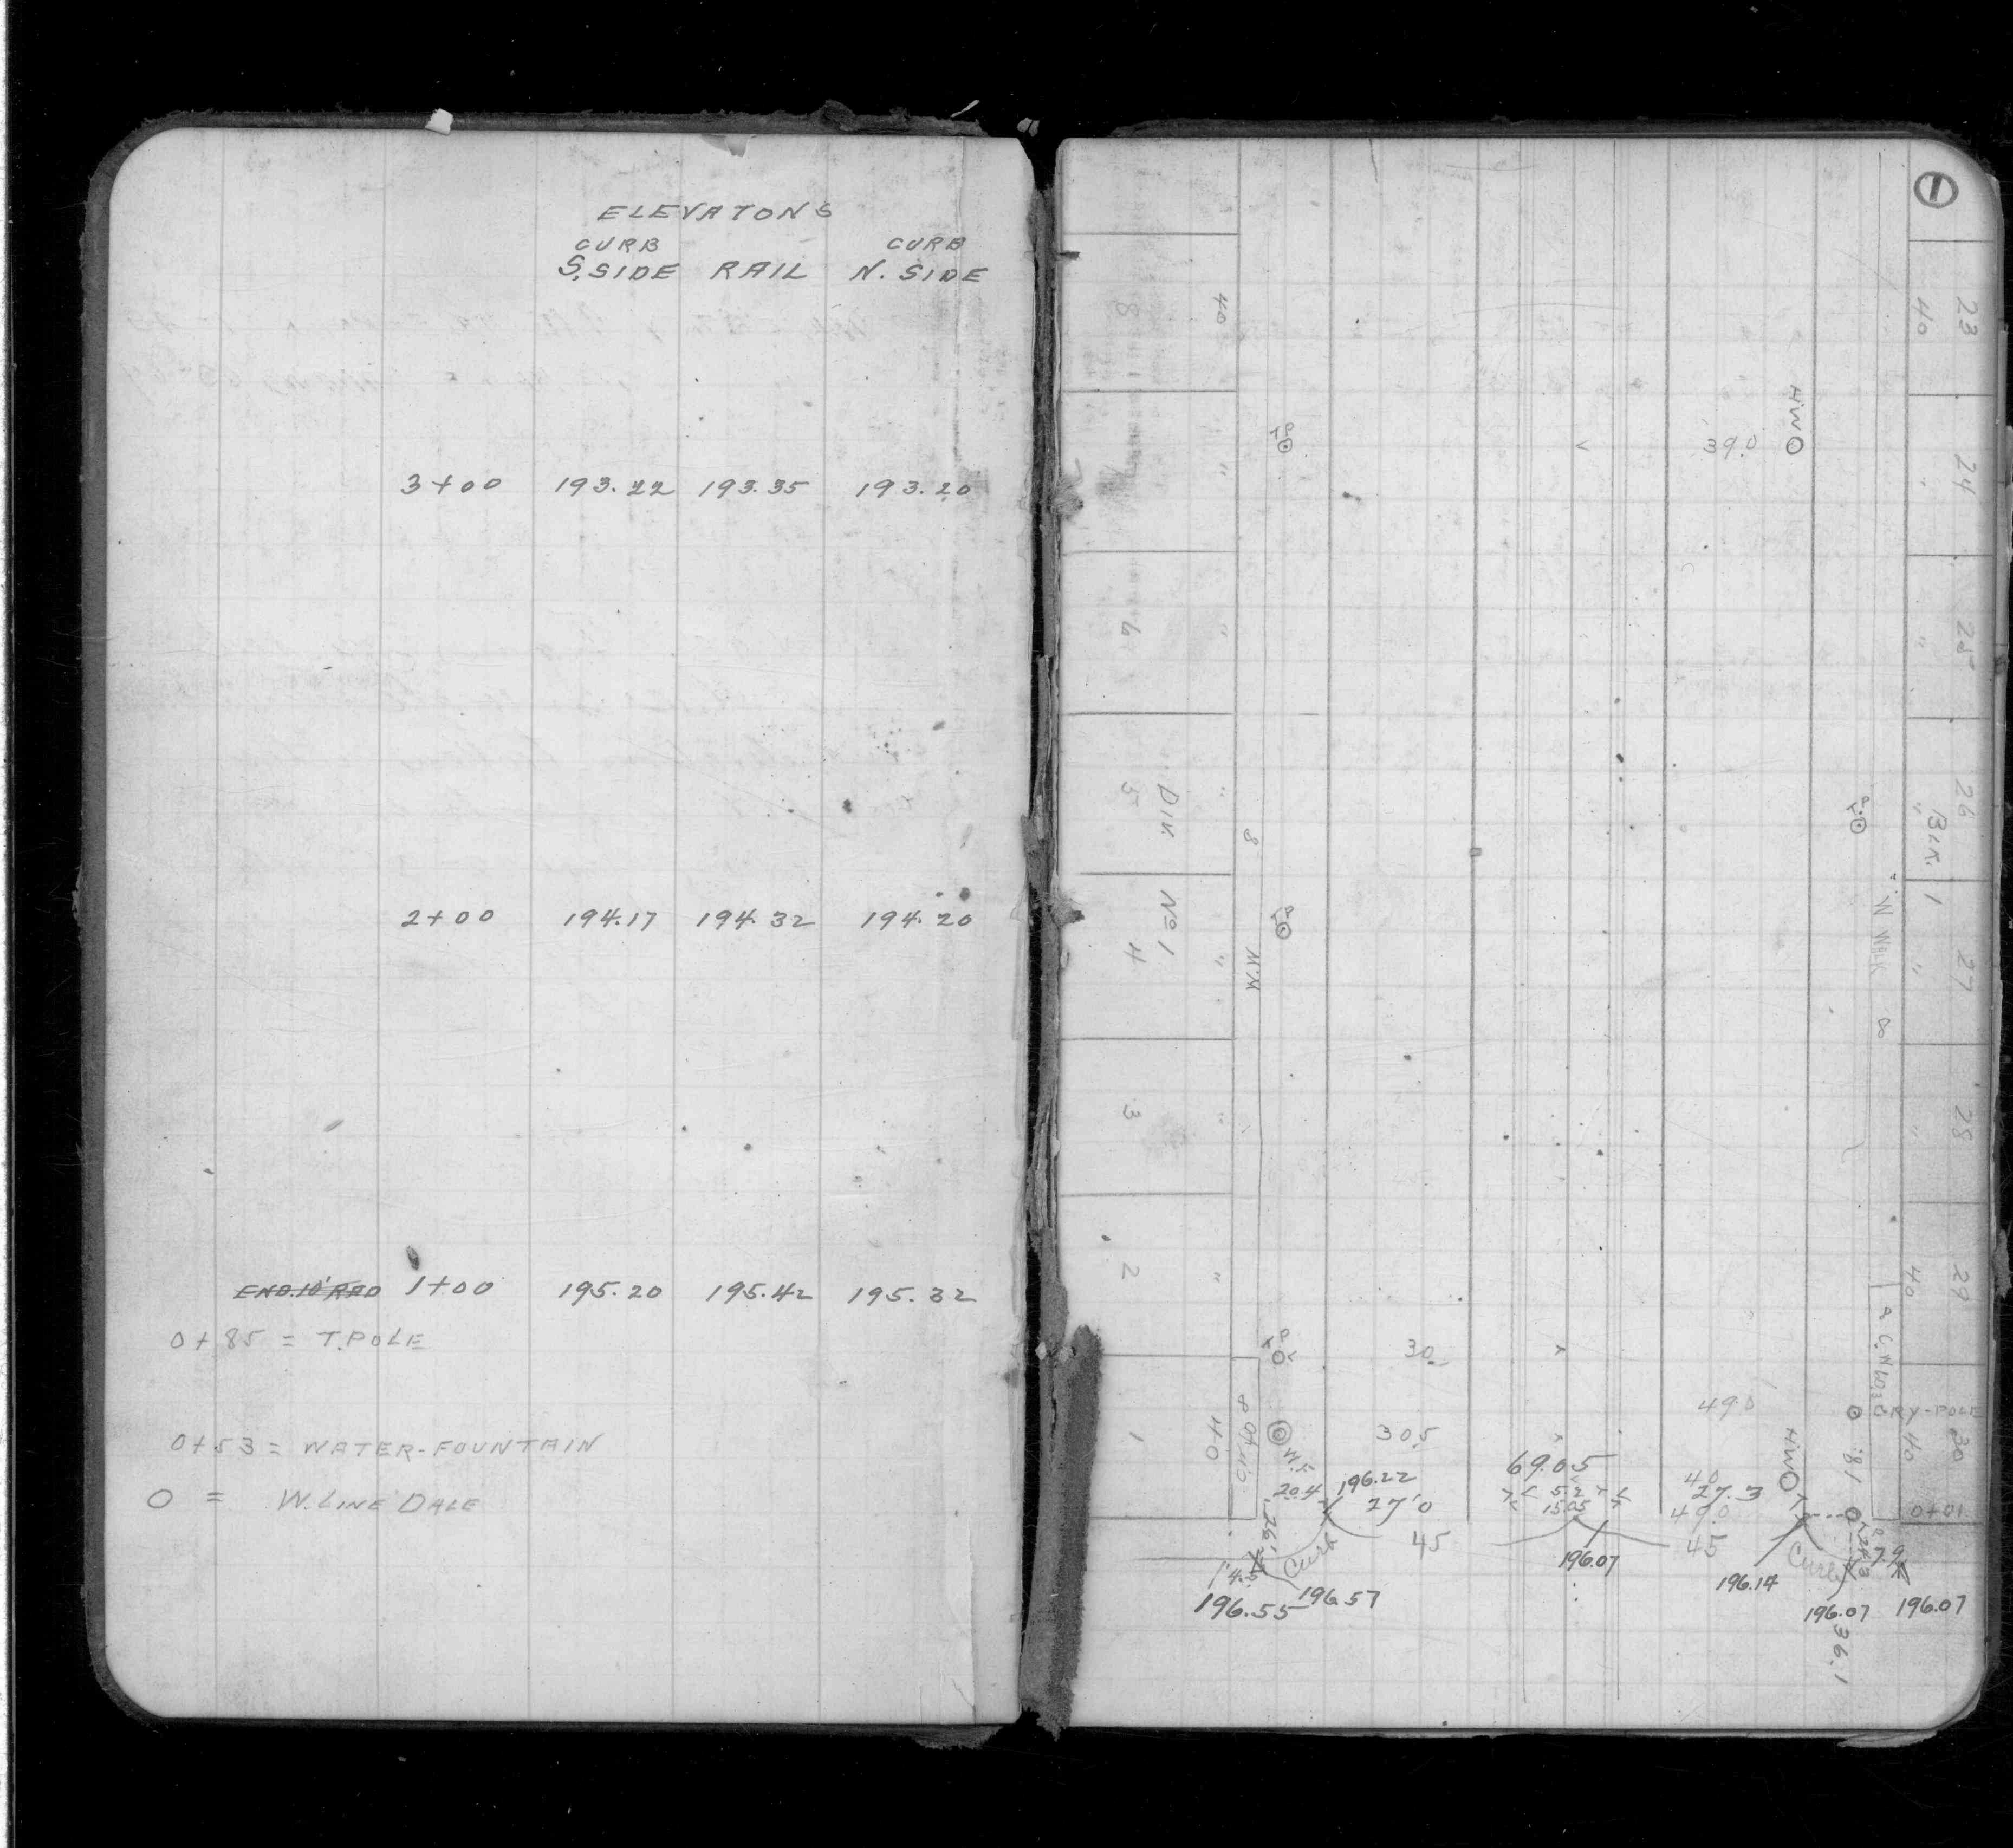 ELEVATONS
CURB CURB
S. SIDE RAIL N. SIDE
3+00 193.22 193.35 193.20
2+00 194.17 194.32 194.20
END.10' RAD 1+00 195.20 195.42 195.32
0+85 = T.POLE
0+53 = WATER-FOUNTAIN
0 = W. LINE DALE
1
40 40 23
8
HW
TP 39.0
" " 24
6 " " 25
" " 26
5 BLK. 1
TP
8
No 1
4 " " 27
TP
W WALK 8
3 " " 28
2 " 40 29
TP 30
49.0
DRY-POLE
1 40 30.5 40 30
W.F. 69.05 HW 18.0
20.4 196.22 5.2 40
27.0 15.05 27.3
49.0 0+01
26' 45 45
Curb 196.07 Curb 7.9
4.5 196.14
196.55 196.57 196.07 196.07
36.1